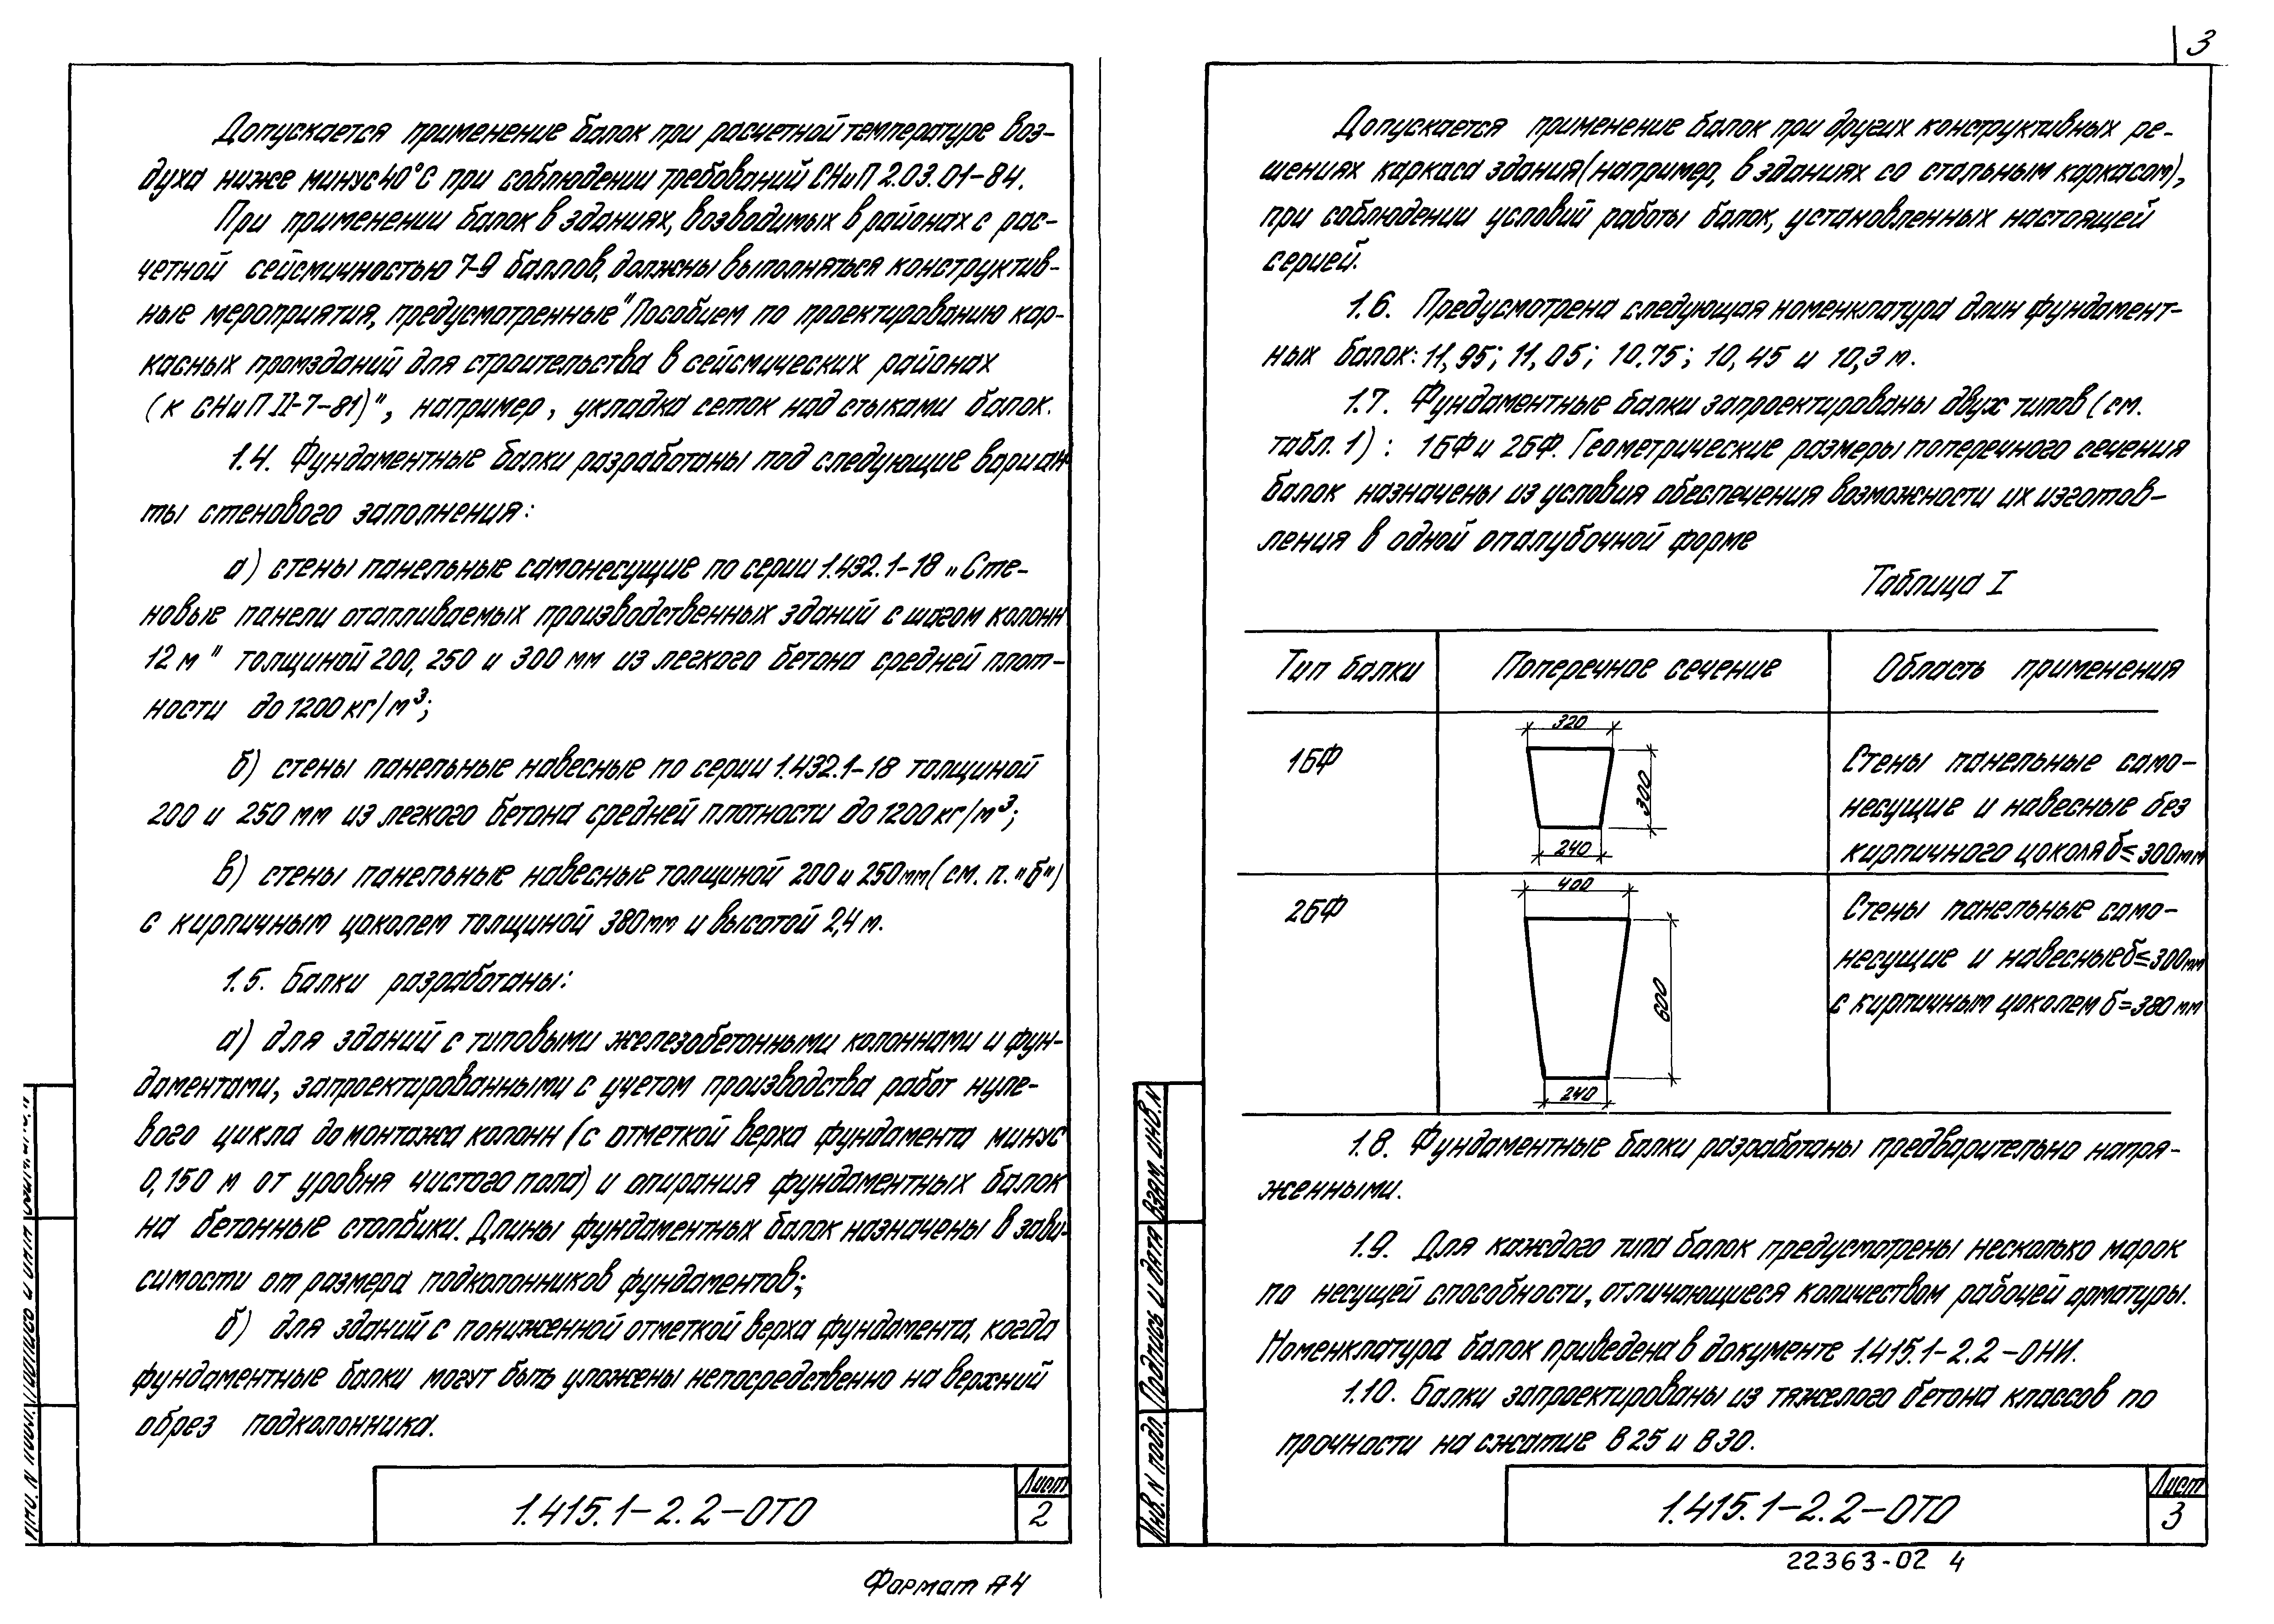 Допускается применение балок при расчетной температуре воз-
духа ниже минус 40°С при соблюдении требований СНиП 2.03.01-84.
При применении балок в зданиях, возводимых в районах с рас-
четной сейсмичностью 7-9 баллов, должны выполняться конструктив-
ные мероприятия, предусмотренные "Пособием по проектированию кар-
касных промзданий для строительства в сейсмических районах
(к СНиП II-7-81)", например, укладка сеток над стыками балок.
1.4. Фундаментные балки разработаны под следующие вариан
ты стенового заполнения:
а) стены панельные самонесущие по серии 1.432.1-18 „Сте-
новые панели отапливаемых производственных зданий с шагом колонн
12 м" толщиной 200, 250 и 300 мм из легкого бетона средней плот-
ности до 1200 кг/м³;
б) стены панельные навесные по серии 1.432.1-18 толщиной
200 и 250 мм из легкого бетона средней плотности до 1200 кг/м³;
в) стены панельные навесные толщиной 200 и 250 мм (см. п. "б")
с кирпичным цоколем толщиной 380 мм и высотой 2,4 м.
1.5. Балки разработаны:
а) для зданий с типовыми железобетонными колоннами и фун-
даментами, запроектированными с учетом производства работ нуле-
вого цикла до монтажа колонн (с отметкой верха фундамента минус
0,150 м от уровня чистого пола) и опирания фундаментных балок
на бетонные столбики. Длины фундаментных балок назначены в зави-
симости от размера подколонников фундаментов;
б) для зданий с пониженной отметкой верха фундамента, когда
фундаментные балки могут быть уложены непосредственно на верхний
обрез подколонника.
1.415.1-2.2-ОТО
Лист
2
Формат А4
3
Допускается применение балок при других конструктивных ре-
шениях каркаса здания (например, в зданиях со стальным каркасом),
при соблюдении условий работы балок, установленных настоящей
серией.
1.6. Предусмотрена следующая номенклатура длин фундамент-
ных балок: 11,95; 11,05; 10.75; 10,45 и 10,3 м.
1.7. Фундаментные балки запроектированы двух типов (см.
табл. 1): 1БФ и 2БФ. Геометрические размеры поперечного сечения
балок назначены из условия обеспечения возможности их изготов-
ления в одной опалубочной форме
Таблица I
Тип балки Поперечное сечение Область применения
1БФ
320
300
240
Стены панельные само-
несущие и навесные без
кирпичного цоколя б≤300мм
2БФ
400
600
240
Стены панельные само-
несущие и навесные б≤300мм
с кирпичным цоколем б=380 мм
1.8. Фундаментные балки разработаны предварительно напря-
женными.
1.9. Для каждого типа балок предусмотрены несколько марок
по несущей способности, отличающиеся количеством рабочей арматуры.
Номенклатура балок приведена в документе 1.415.1-2.2-ОНИ.
1.10. Балки запроектированы из тяжелого бетона классов по
прочности на сжатие В25 и В30.
Инв. N подл. Подпись и дата Взам. инв. N
1.415.1-2.2-ОТО
Лист
3
22363-02 4